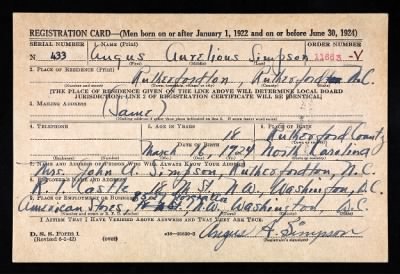 REGISTRATION CARD—(Men born on or after January 1, 1922 and on or before June 30, 1924)
SERIAL NUMBER 1. NAME (Print) ORDER NUMBER
N 433 Angus Aurelious Simpson 11663-V
(First) (Middle) (Last)
2. PLACE OF RESIDENCE (Print)
Rutherfordton, Rutherford N.C.
[THE PLACE OF RESIDENCE GIVEN ON THE LINE ABOVE WILL DETERMINE LOCAL BOARD
JURISDICTION; LINE 2 OF REGISTRATION CERTIFICATE WILL BE IDENTICAL]
3. MAILING ADDRESS
Same
4. TELEPHONE 5. AGE IN YEARS 6. PLACE OF BIRTH
18 Rutherford County
DATE OF BIRTH
March 16, 1924 North Carolina
7. NAME AND ADDRESS OF PERSON WHO WILL ALWAYS KNOW YOUR ADDRESS
Mrs. John A. Simpson, Rutherfordton, N.C.
8. EMPLOYER'S NAME AND ADDRESS
R. H. Castle 18 St., N.W., Washington, D.C.
American Stores, N.W. Washington, D.C.
I AFFIRM THAT I HAVE VERIFIED ABOVE ANSWERS AND THAT THEY ARE TRUE.
D. S. S. FORM 1
(Revised 6-1-42) (over)
Angus A. Simpson